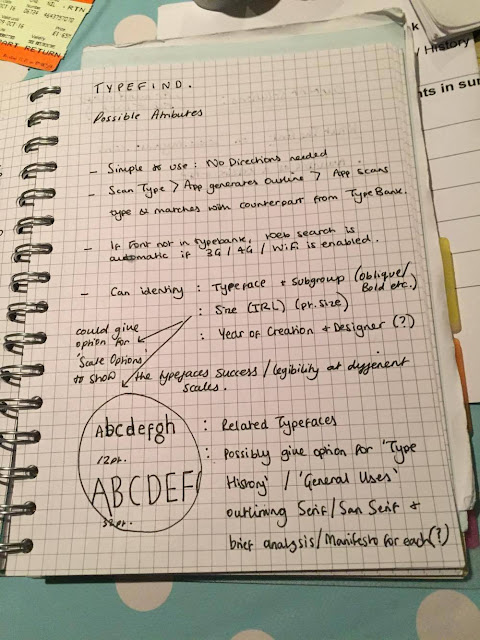 TYPEFIND.
Possible Attributes
- Simple to use : No Directions needed
- Scan Type > App generates outline > App scans
type & matches with counterpart from TypeBank.
- If Font not in typebank, web search is
automatic if 3G / 4G / WiFi is enabled.
- Can identify : Typeface + Subgroup (Oblique/
Bold etc.)
: Size (IRL) (pt. size)
: Year of Creation + Designer (?)
could give
option for
'Scale Options'
to show the typefaces success / legibility at different
scales.
Abcdefgh
12pt.
ABCDEF
32pt.
: Related Typefaces
: Possibly give option for 'Type
History' / 'General Uses'
outlining Serif / San Serif +
brief analysis / Manifesto for each (?)
RTN
OCT 16
ART RETURN
/ History
nts in sur